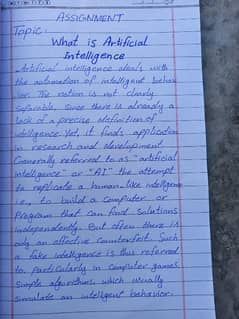 ASSIGNMENT
Topic:
What is Artificial
Intelligence
Artificial intelligence deals with
the automation of intelligent behav
ior. The notion is not clearly
separable, since there is already a
lack of a precise definition of
intelligence. Yet, it finds application
in research and development
Generally referred to as "artificial
intelligence" or "AI" the attempt
to replicate a human-like intelligence
i.e., to build a computer or
Program that can find solutions
independently. But often there is
only an effective counterfeit. Such
a fake intelligence is thus referred
to, particularly in computer games
Simple algorithms which usually
simulate an intelligent behavior.